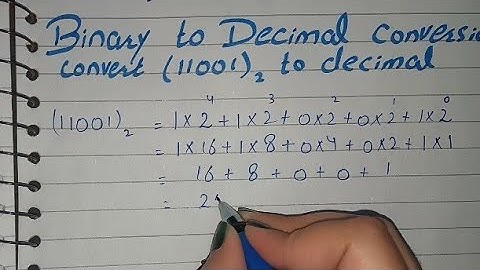 Binary to Decimal conversi
convert (11001)₂ to decimal
(11001)₂ = 1×2⁴+1×2³+0×2²+0×2¹+1×2⁰
= 1×16+1×8+0×4+0×2+1×1
= 16 + 8 + 0 + 0 + 1
= 2